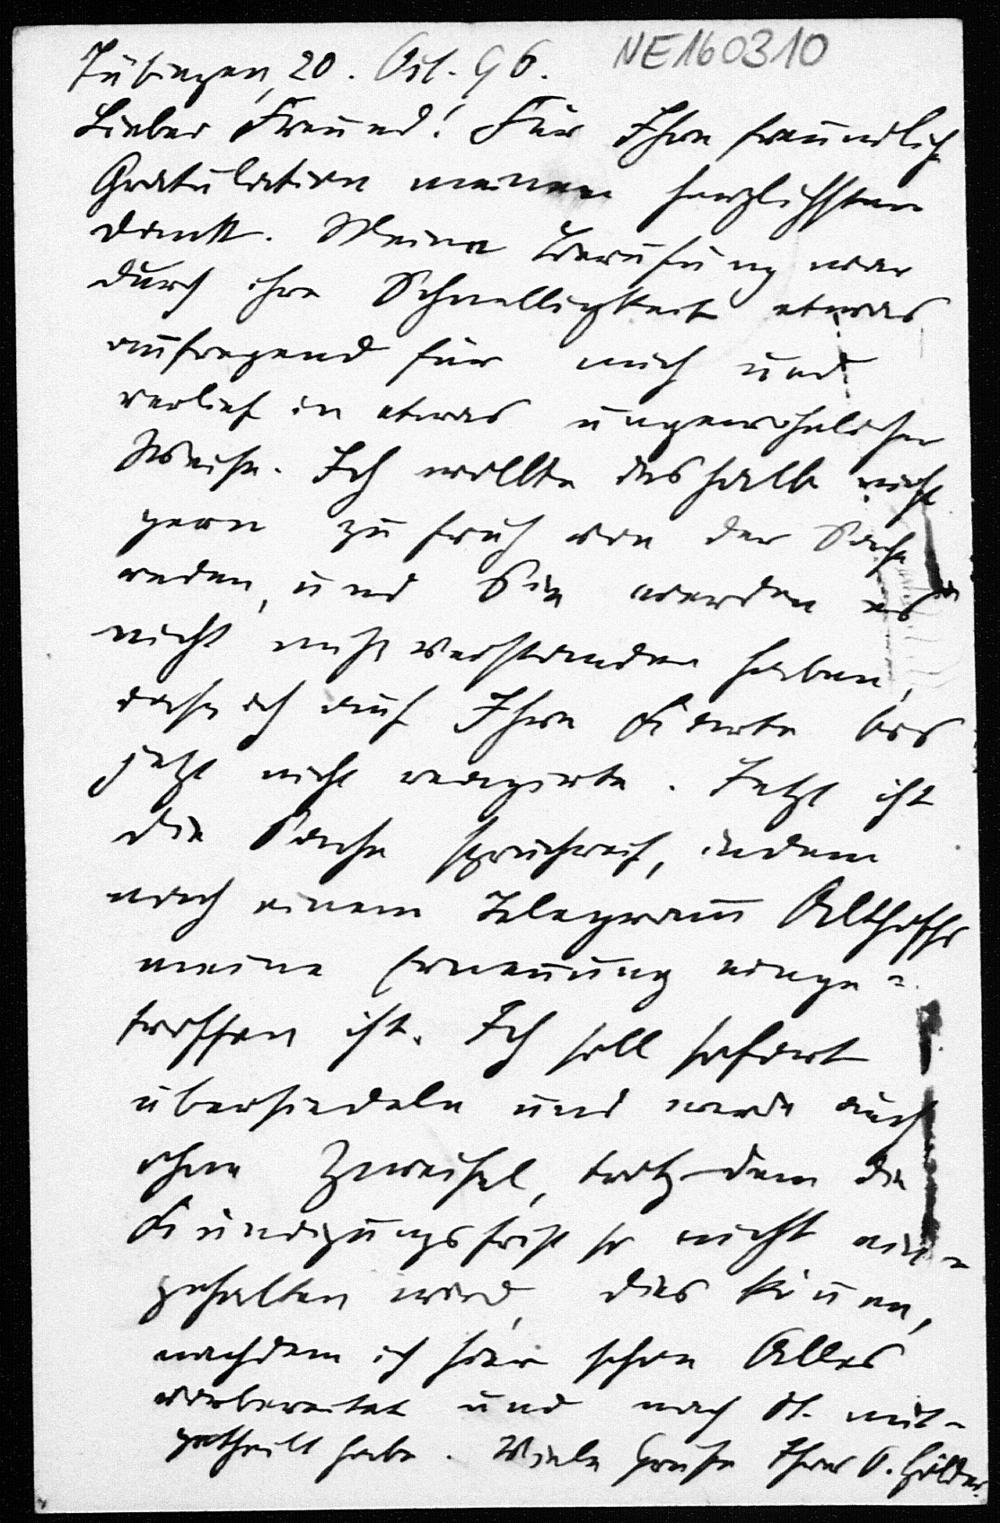 Tübingen, 20. Oct. 96. NE160310
Lieber Freund! Für Ihre freundliche
Gratulation meinen herzlichsten
Dank. Meine Berufung war
durch ihre Schnelligkeit etwas
aufregend für mich und
verlief in etwas ungewöhnlicher
Weise. Ich wollte deshalb nicht
gern zu früh von der Sache
reden, und Sie werden es
nicht mißverstanden haben,
daß ich auf Ihre Karte bis
jetzt nicht reagirte. Jetzt ist
die Sache spruchreif, indem
nach einem Telegramm Althoffs
meine Ernennung einge-
troffen ist. Ich soll sofort
übersiedeln und werde auch
ohne Zweifel, trotzdem die
Kündigungsfrist so nicht ein-
gehalten wird, dies können,
nachdem ich hier schon Alles
vorbereitet und nach St. mit-
getheilt habe. Viele Grüße Ihres O. Hölder.